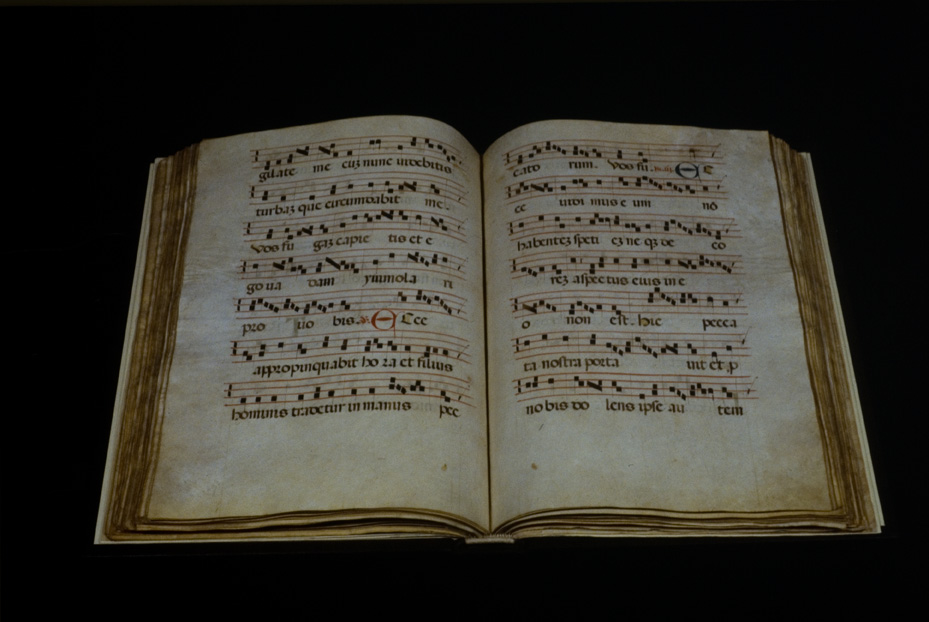 gilate me cuz nunc videbitis
turbaz que circumdabit me.
Vos fu gaz capie tis et e
go va dam ymmola ri
pro vo bis. Ecce
appropinquabit ho ra et filius
hominis tradetur in manus pec
cato rum. Vos fu. E c
ce vidi mus e um nō
habentez speti ez ne qz de co
rez aspectus eius in e
o non est. hic pecca
ta nostra porta vit et p
no bis do lens ipse au tem